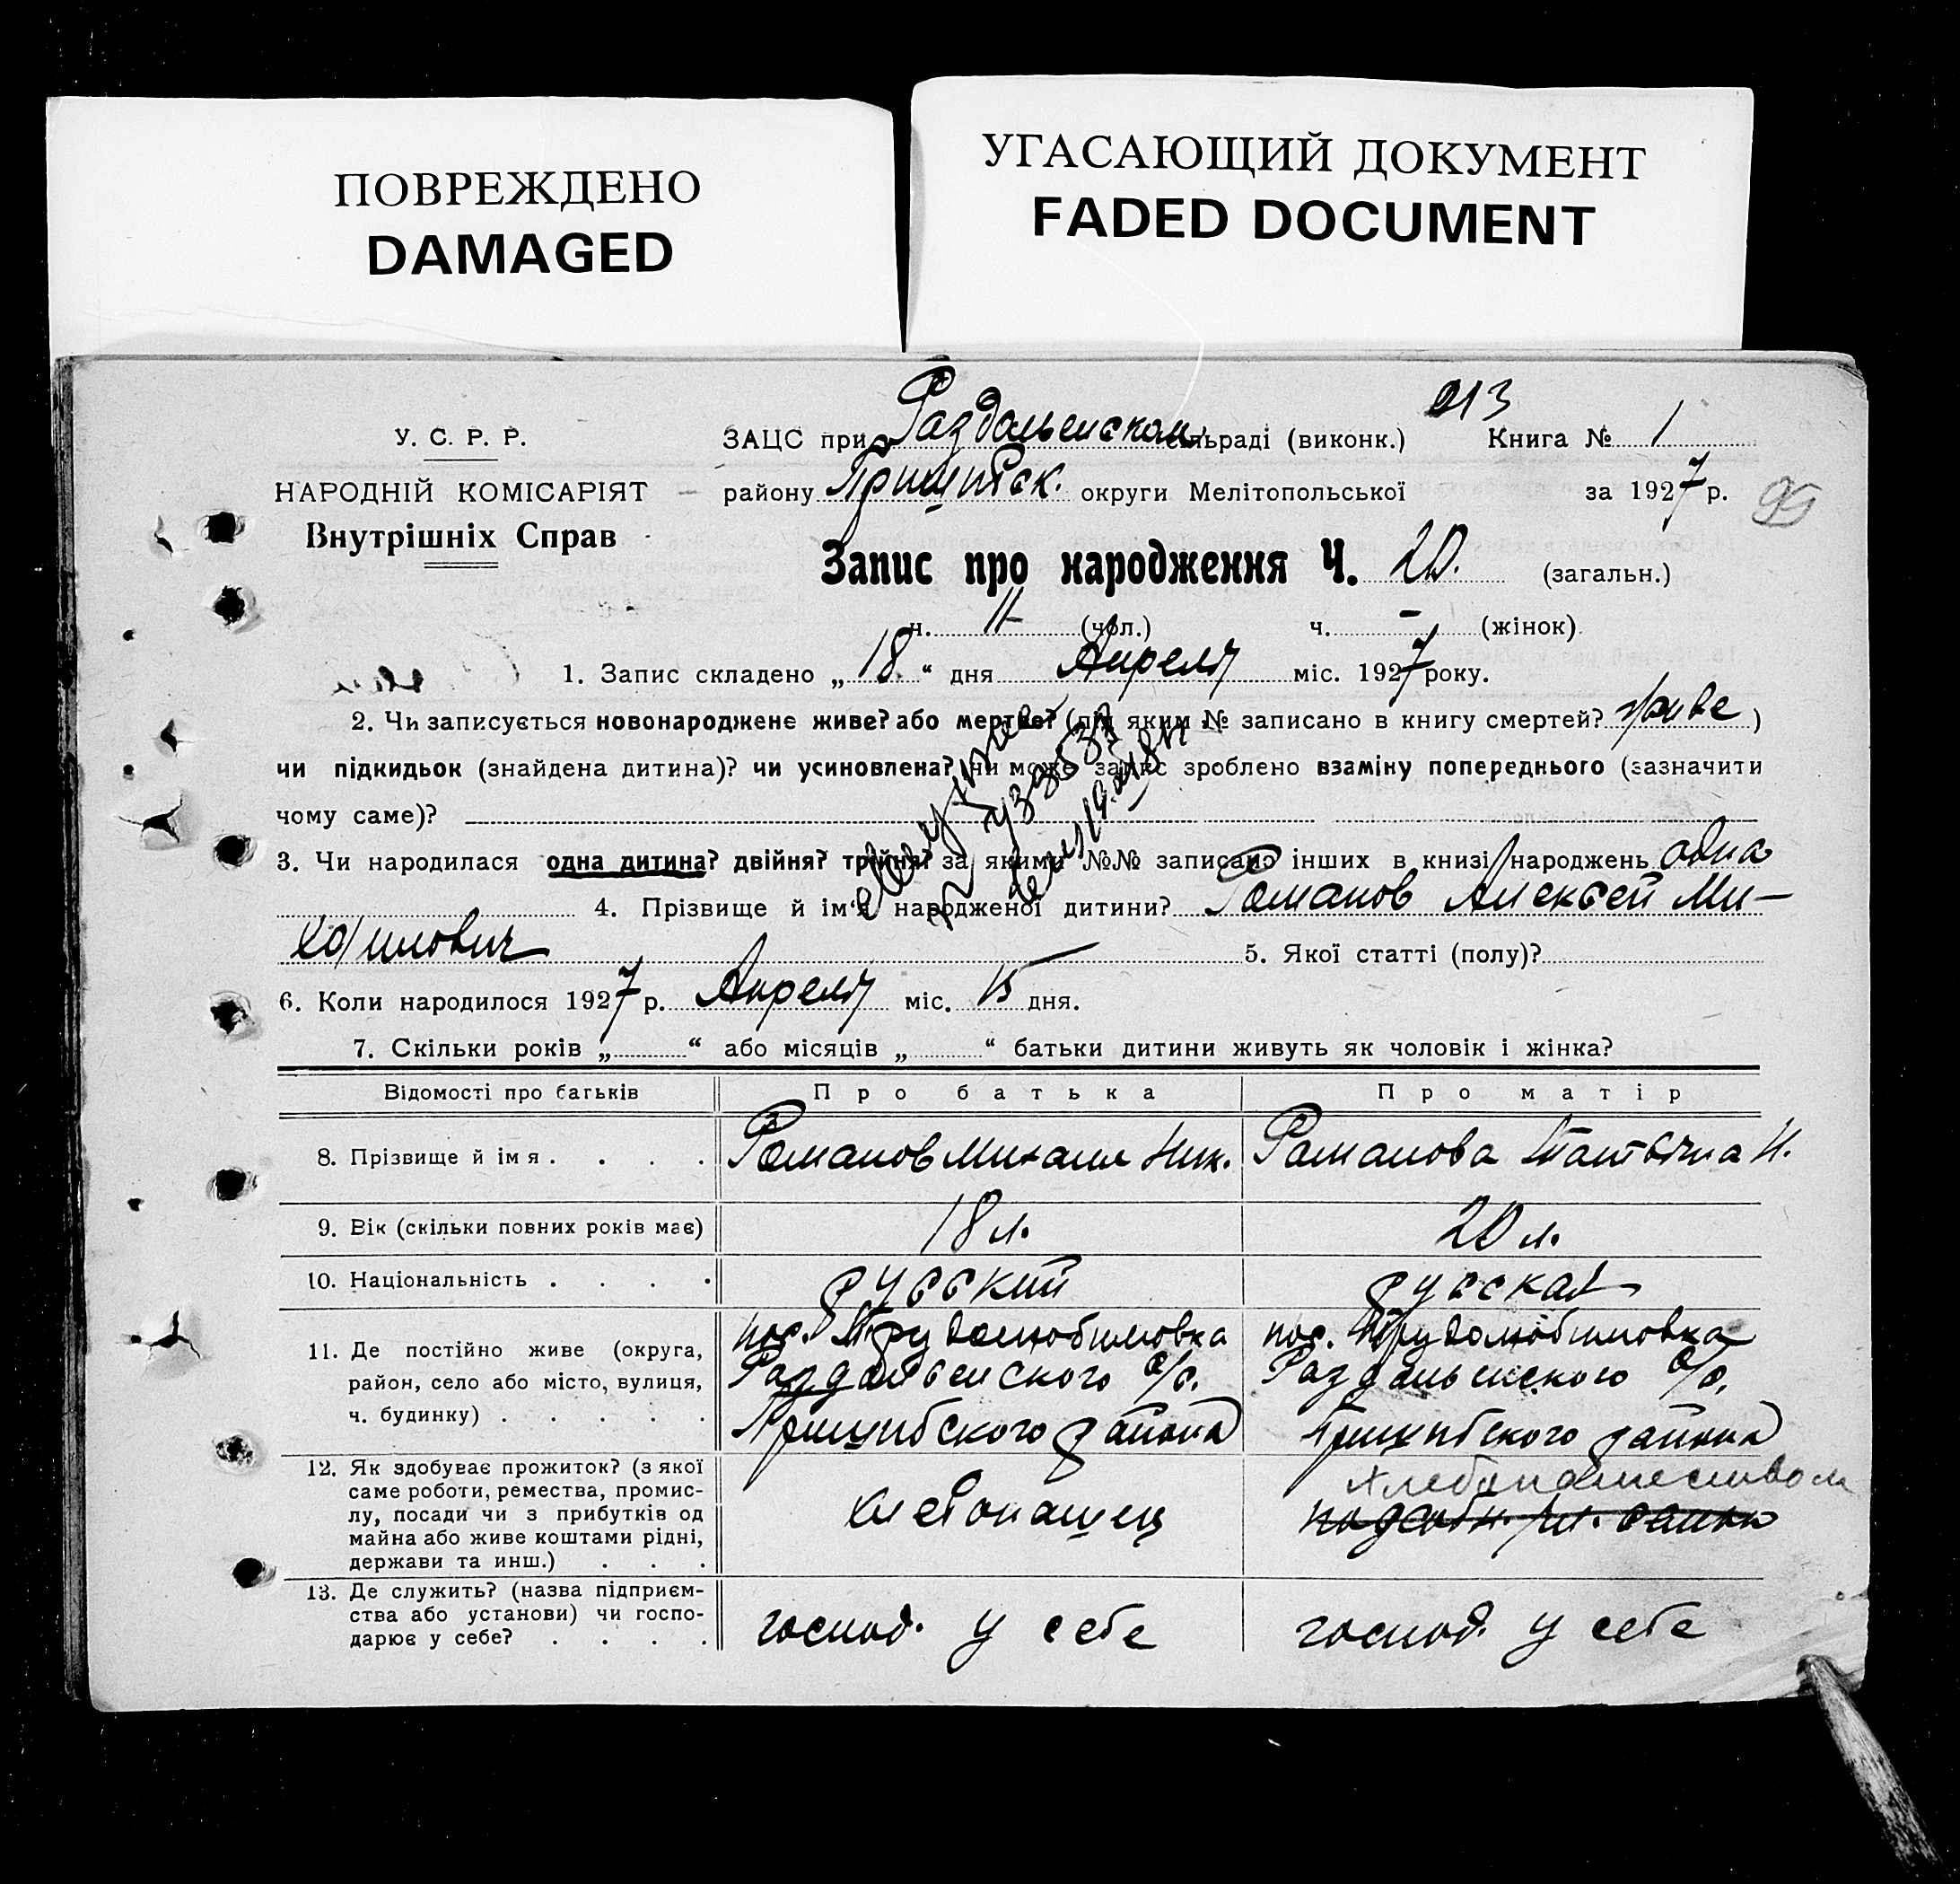 ПОВРЕЖДЕНО
DAMAGED
УГАСАЮЩИЙ ДОКУМЕНТ
FADED DOCUMENT
У. С. Р. Р.
НАРОДНІЙ КОМІСАРІЯТ
Внутрішніх Справ
213
ЗАЦС при Раздольенском сільраді (виконк.) Книга № 1
району Пришибск. округи Мелітопольської за 1927 р.
95
Запис про народження Ч. 20. (загальн.)
ч. 11 (чол.) ч. – (жінок)
1. Запис складено „ 18 “ дня Апреля міс. 1927 року.
2. Чи записується новонароджене живе? або мертве? (під яким № записано в книгу смертей? живе )
чи підкидьок (знайдена дитина)? чи усиновлена? чи може запис зроблено взаміну попереднього (зазначити
чому саме)?
3. Чи народилася одна дитина? двійня? трійня? за якими №№ записано інших в книзі народжень одна
4. Прізвище й ім'я народженої дитини? Романов Алексей Ми-
хайлович 5. Якої статті (полу)?
6. Коли народилося 1927 р. Апреля міс. 15 дня.
7. Скільки років „ “ або місяців „ “ батьки дитини живуть як чоловік і жінка?
Відомості про батьків Про батька Про матір
8. Прізвище й імя . . . . Романов Михаил Ник. Романова Татьяна Н.
9. Вік (скільки повних років має) 18 л. 20 л.
10. Національність . . . . русский русская
11. Де постійно живе (округа,
район, село або місто, вулиця,
ч. будинку) . . . . .
пос. Трудолюбимовка
Раздольенского с/с.
Пришибского района
пос. Трудолюбимовка
Раздольенского с/с.
Пришибского района
12. Як здобуває прожиток? (з якої
саме роботи, ремества, промис-
лу, посади чи з прибутків од
майна або живе коштами рідні,
держави та инш.) . . .
хлебопашец
хлебопашеством
13. Де служить? (назва підприєм-
ства або установи) чи госпо-
дарює у себе? . . . .
господ. у себе
господ. у себе